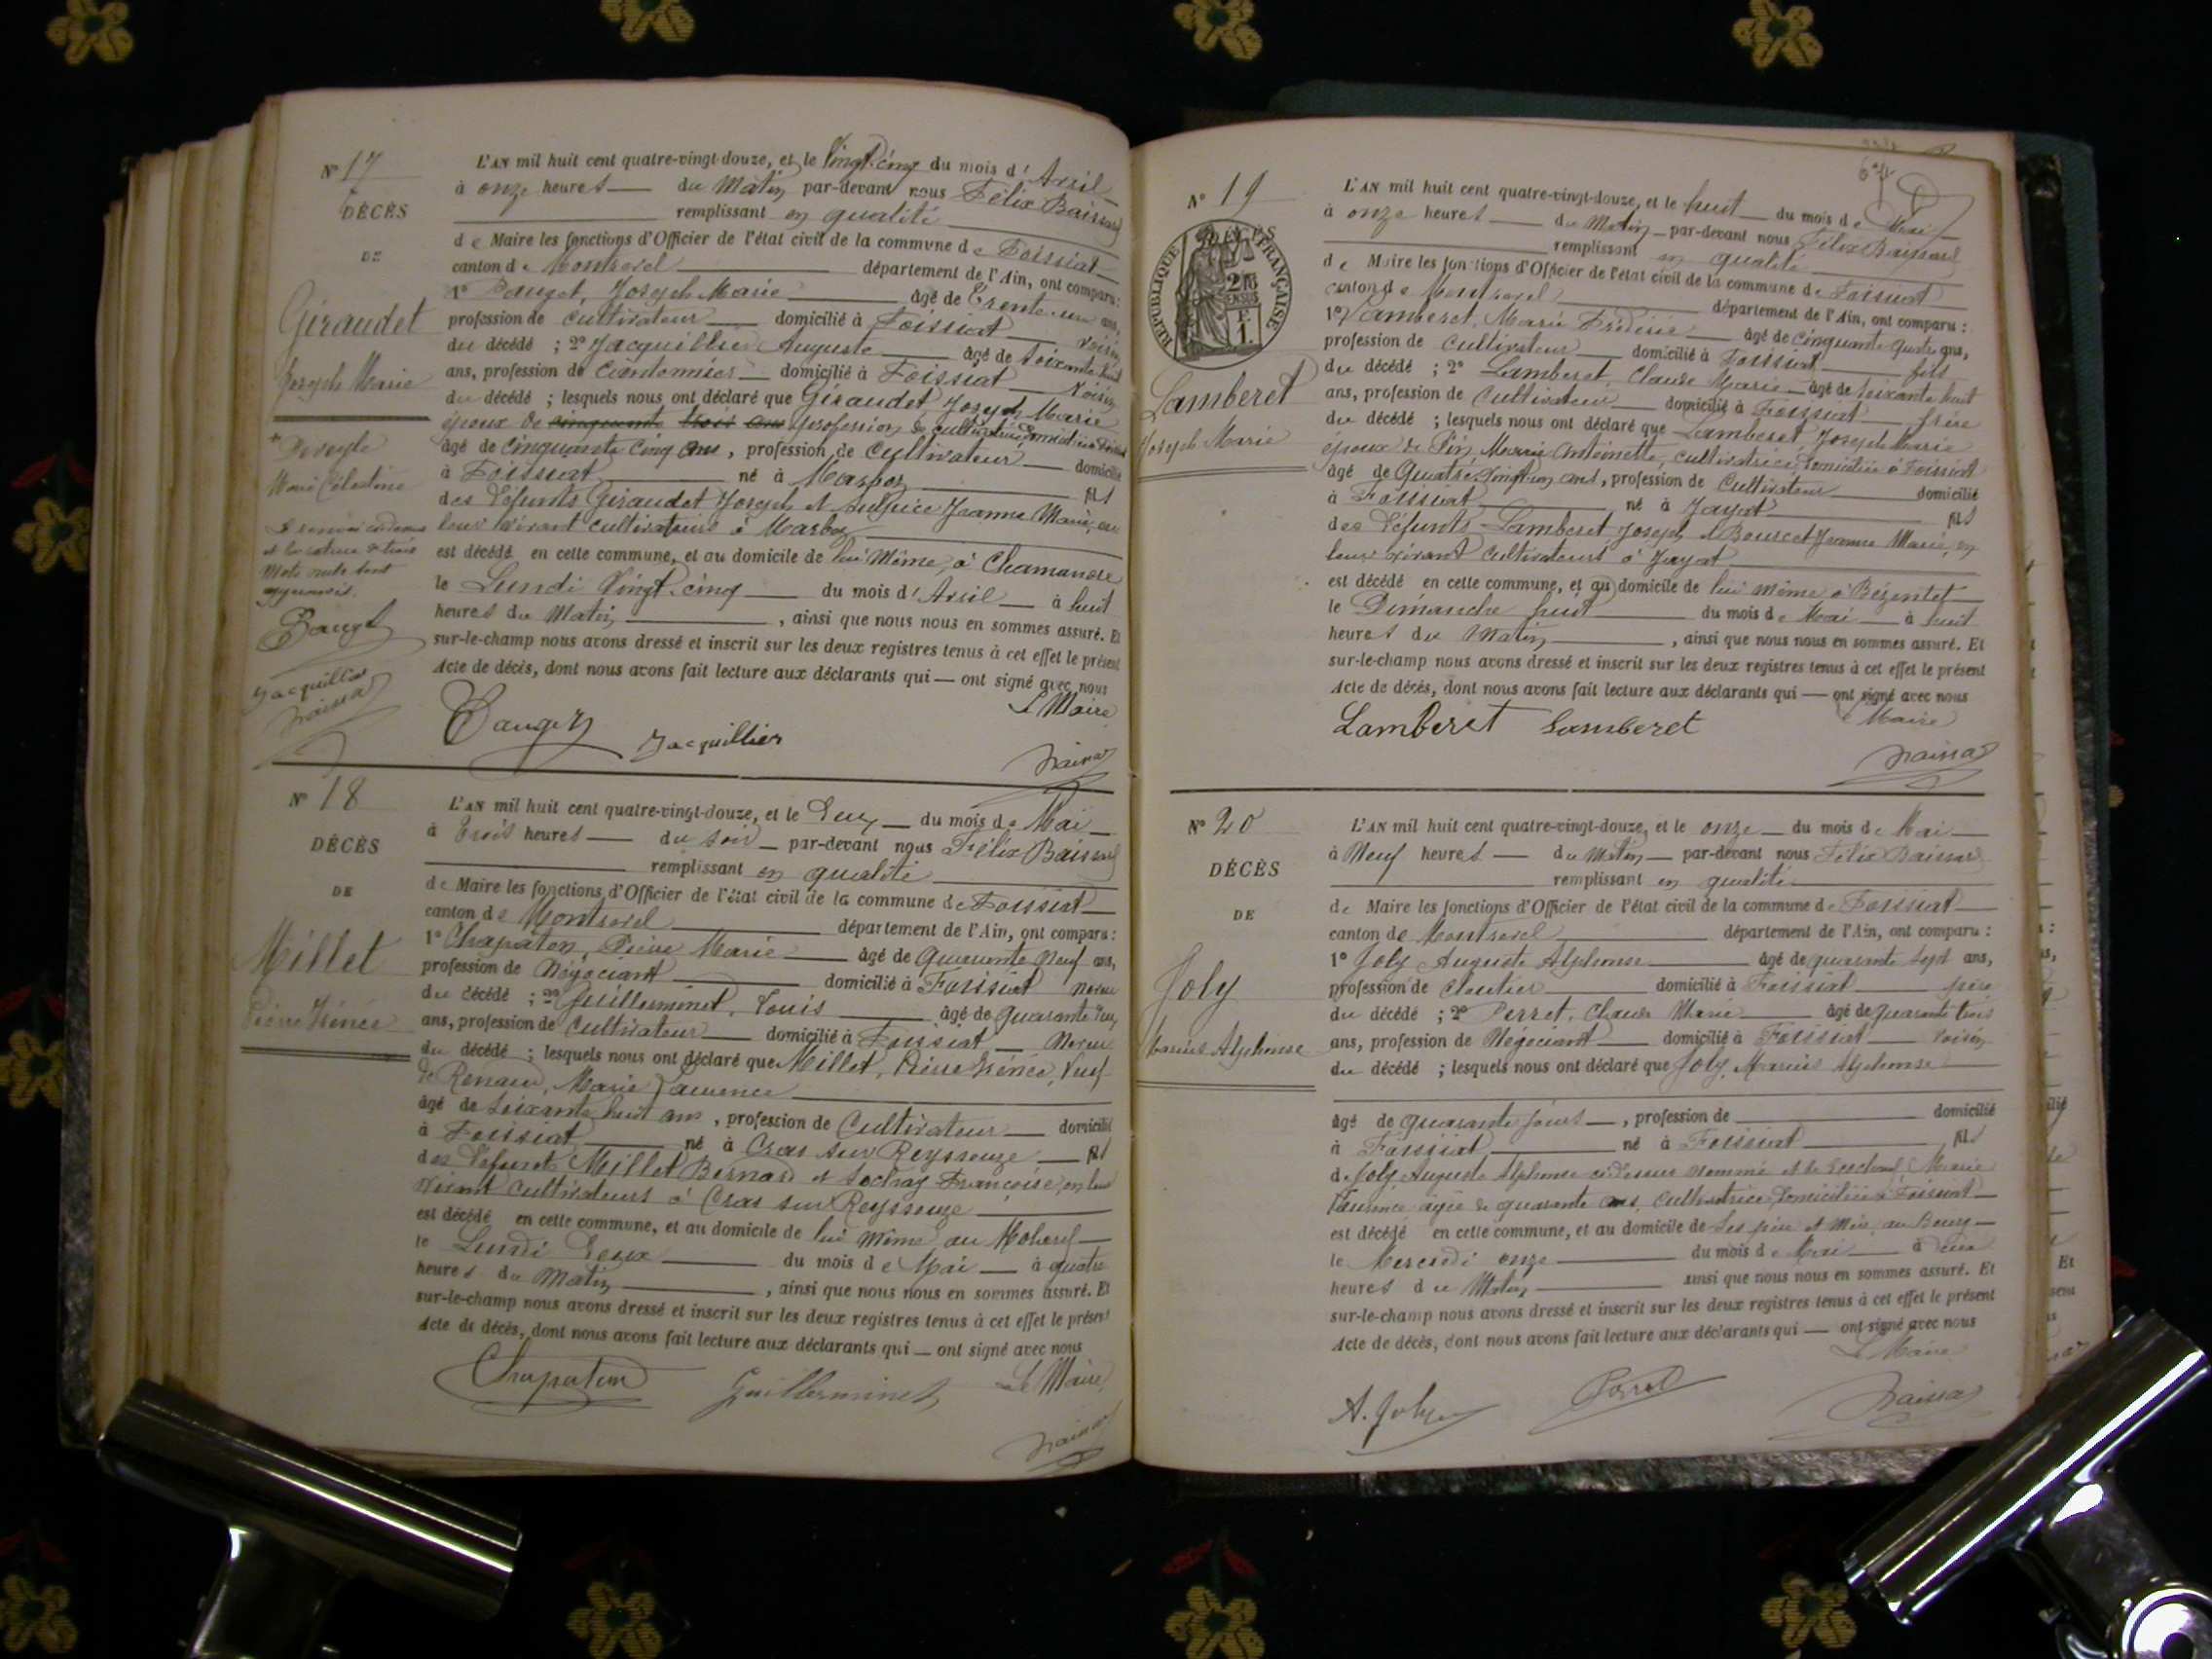 N° 17
DÉCÈS
DE
Giraudet
Joseph Marie
Marie Célestine
Jacquillier
L'AN mil huit cent quatre-vingt-douze, et le vingt-cinq du mois d'Avril
à onze heures du Matin par-devant nous Félix Baissard
remplissant en qualité
de Maire les fonctions d'Officier de l'état civil de la commune de Foissiat
canton de Montrevel département de l'Ain, ont comparu :
1° Pauget, Joseph Marie âgé de Trente-un ans,
profession de cultivateur domicilié à Foissiat voisin
du décédé ; 2° Jacquillier Auguste âgé de soixante huit
ans, profession de Cordonnier domicilié à Foissiat Voisin
du décédé ; lesquels nous ont déclaré que Giraudet, Joseph Marie
époux de cinquante trois ans profession de cultivatrice domiciliée à Foissiat
âgé de cinquante cinq ans, profession de Cultivateur domicilié
à Foissiat né à Marboz fils
des défunts Giraudet Joseph et Sulpice Jeanne Marie, en
leur vivant cultivateurs à Marboz
est décédé en cette commune, et au domicile de lui même, à Chamandre
le Lundi Vingt-cinq du mois d'Avril à huit
heures du Matin, ainsi que nous nous en sommes assuré. Et
sur-le-champ nous avons dressé et inscrit sur les deux registres tenus à cet effet le présent
Acte de décès, dont nous avons fait lecture aux déclarants qui — ont signé avec nous
Le Maire
Pauget Jacquillier
N° 18
DÉCÈS
DE
Millet
Pierre Irénée
L'AN mil huit cent quatre-vingt-douze, et le Deux du mois de Mai
à Trois heures du soir par-devant nous Félix Baissard
remplissant en qualité
de Maire les fonctions d'Officier de l'état civil de la commune de Foissiat
canton de Montrevel département de l'Ain, ont comparu :
1° Chapaton, Pierre Marie âgé de Quarante neuf ans,
profession de Négociant domicilié à Foissiat neveu
du décédé ; 2° Guillerminet, Louis âgé de quarante deux
ans, profession de Cultivateur domicilié à Foissiat Neveu
du décédé ; lesquels nous ont déclaré que Millet, Pierre Irénée, Veuf
de Renaud, Marie Laurence
âgé de soixante huit ans, profession de Cultivateur domicilié
à Foissiat né à Cras sur Reyssouze fils
des défunts Millet Bernard et Sochay Françoise, en leur
vivant cultivateurs à Cras sur Reyssouze
est décédé en cette commune, et au domicile de lui même au
le Lundi Deux du mois de Mai à quatre
heures du Matin, ainsi que nous nous en sommes assuré. Et
sur-le-champ nous avons dressé et inscrit sur les deux registres tenus à cet effet le présent
Acte de décès, dont nous avons fait lecture aux déclarants qui — ont signé avec nous
Le Maire
Chapaton Guillerminet
N° 19
RÉPUBLIQUE FRANÇAISE
Lamberet
Joseph Marie
L'AN mil huit cent quatre-vingt-douze, et le huit du mois de Mai
à onze heures du Matin par-devant nous Félix Baissard
remplissant en qualité
de Maire les fonctions d'Officier de l'état civil de la commune de Foissiat
canton de Montrevel département de l'Ain, ont comparu :
1° Lamberet, Marie Frédéric âgé de cinquante quatre ans,
profession de Cultivateur domicilié à Foissiat fils
du décédé ; 2° Lamberet, Claude Marie âgé de soixante huit
ans, profession de Cultivateur domicilié à Foissiat frère
du décédé ; lesquels nous ont déclaré que Lamberet Joseph Marie
époux de Pin, Marie Antoinette, cultivatrice, domiciliée à Foissiat
âgé de Quatre Vingt un ans, profession de Cultivateur domicilié
à Foissiat né à Jayat fils
des défunts Lamberet Joseph et Bourcet Jeanne Marie, en
leur vivant Cultivateurs à Jayat
est décédé en cette commune, et au domicile de lui même à Bézentet
le Dimanche huit du mois de Mai à huit
heures du Matin, ainsi que nous nous en sommes assuré. Et
sur-le-champ nous avons dressé et inscrit sur les deux registres tenus à cet effet le présent
Acte de décès, dont nous avons fait lecture aux déclarants qui — ont signé avec nous
Le Maire
Lamberet Lamberet
N° 20
DÉCÈS
DE
Joly
Marius Alphonse
L'AN mil huit cent quatre-vingt-douze, et le onze du mois de Mai
à Neuf heures du Matin par-devant nous Félix Baissard
remplissant en qualité
de Maire les fonctions d'Officier de l'état civil de la commune de Foissiat
canton de Montrevel département de l'Ain, ont comparu :
1° Joly Auguste Alphonse âgé de quarante sept ans,
profession de Cloutier domicilié à Foissiat père
du décédé ; 2° Perret, Claude Marie âgé de quarante trois
ans, profession de Négociant domicilié à Foissiat voisin
du décédé ; lesquels nous ont déclaré que Joly, Marius Alphonse
âgé de quarante jours, profession de domicilié
à Foissiat né à Foissiat fils
de Joly Auguste Alphonse ci-dessus nommé et de Marie
âgée de quarante ans, Cultivatrice, domiciliée à Foissiat
est décédé en cette commune, et au domicile de ses père et mère au Bourg
le Mercredi onze du mois de Mai à deux
heures du Matin ainsi que nous nous en sommes assuré. Et
sur-le-champ nous avons dressé et inscrit sur les deux registres tenus à cet effet le présent
Acte de décès, dont nous avons fait lecture aux déclarants qui — ont signé avec nous
Le Maire
A. Joly Perret